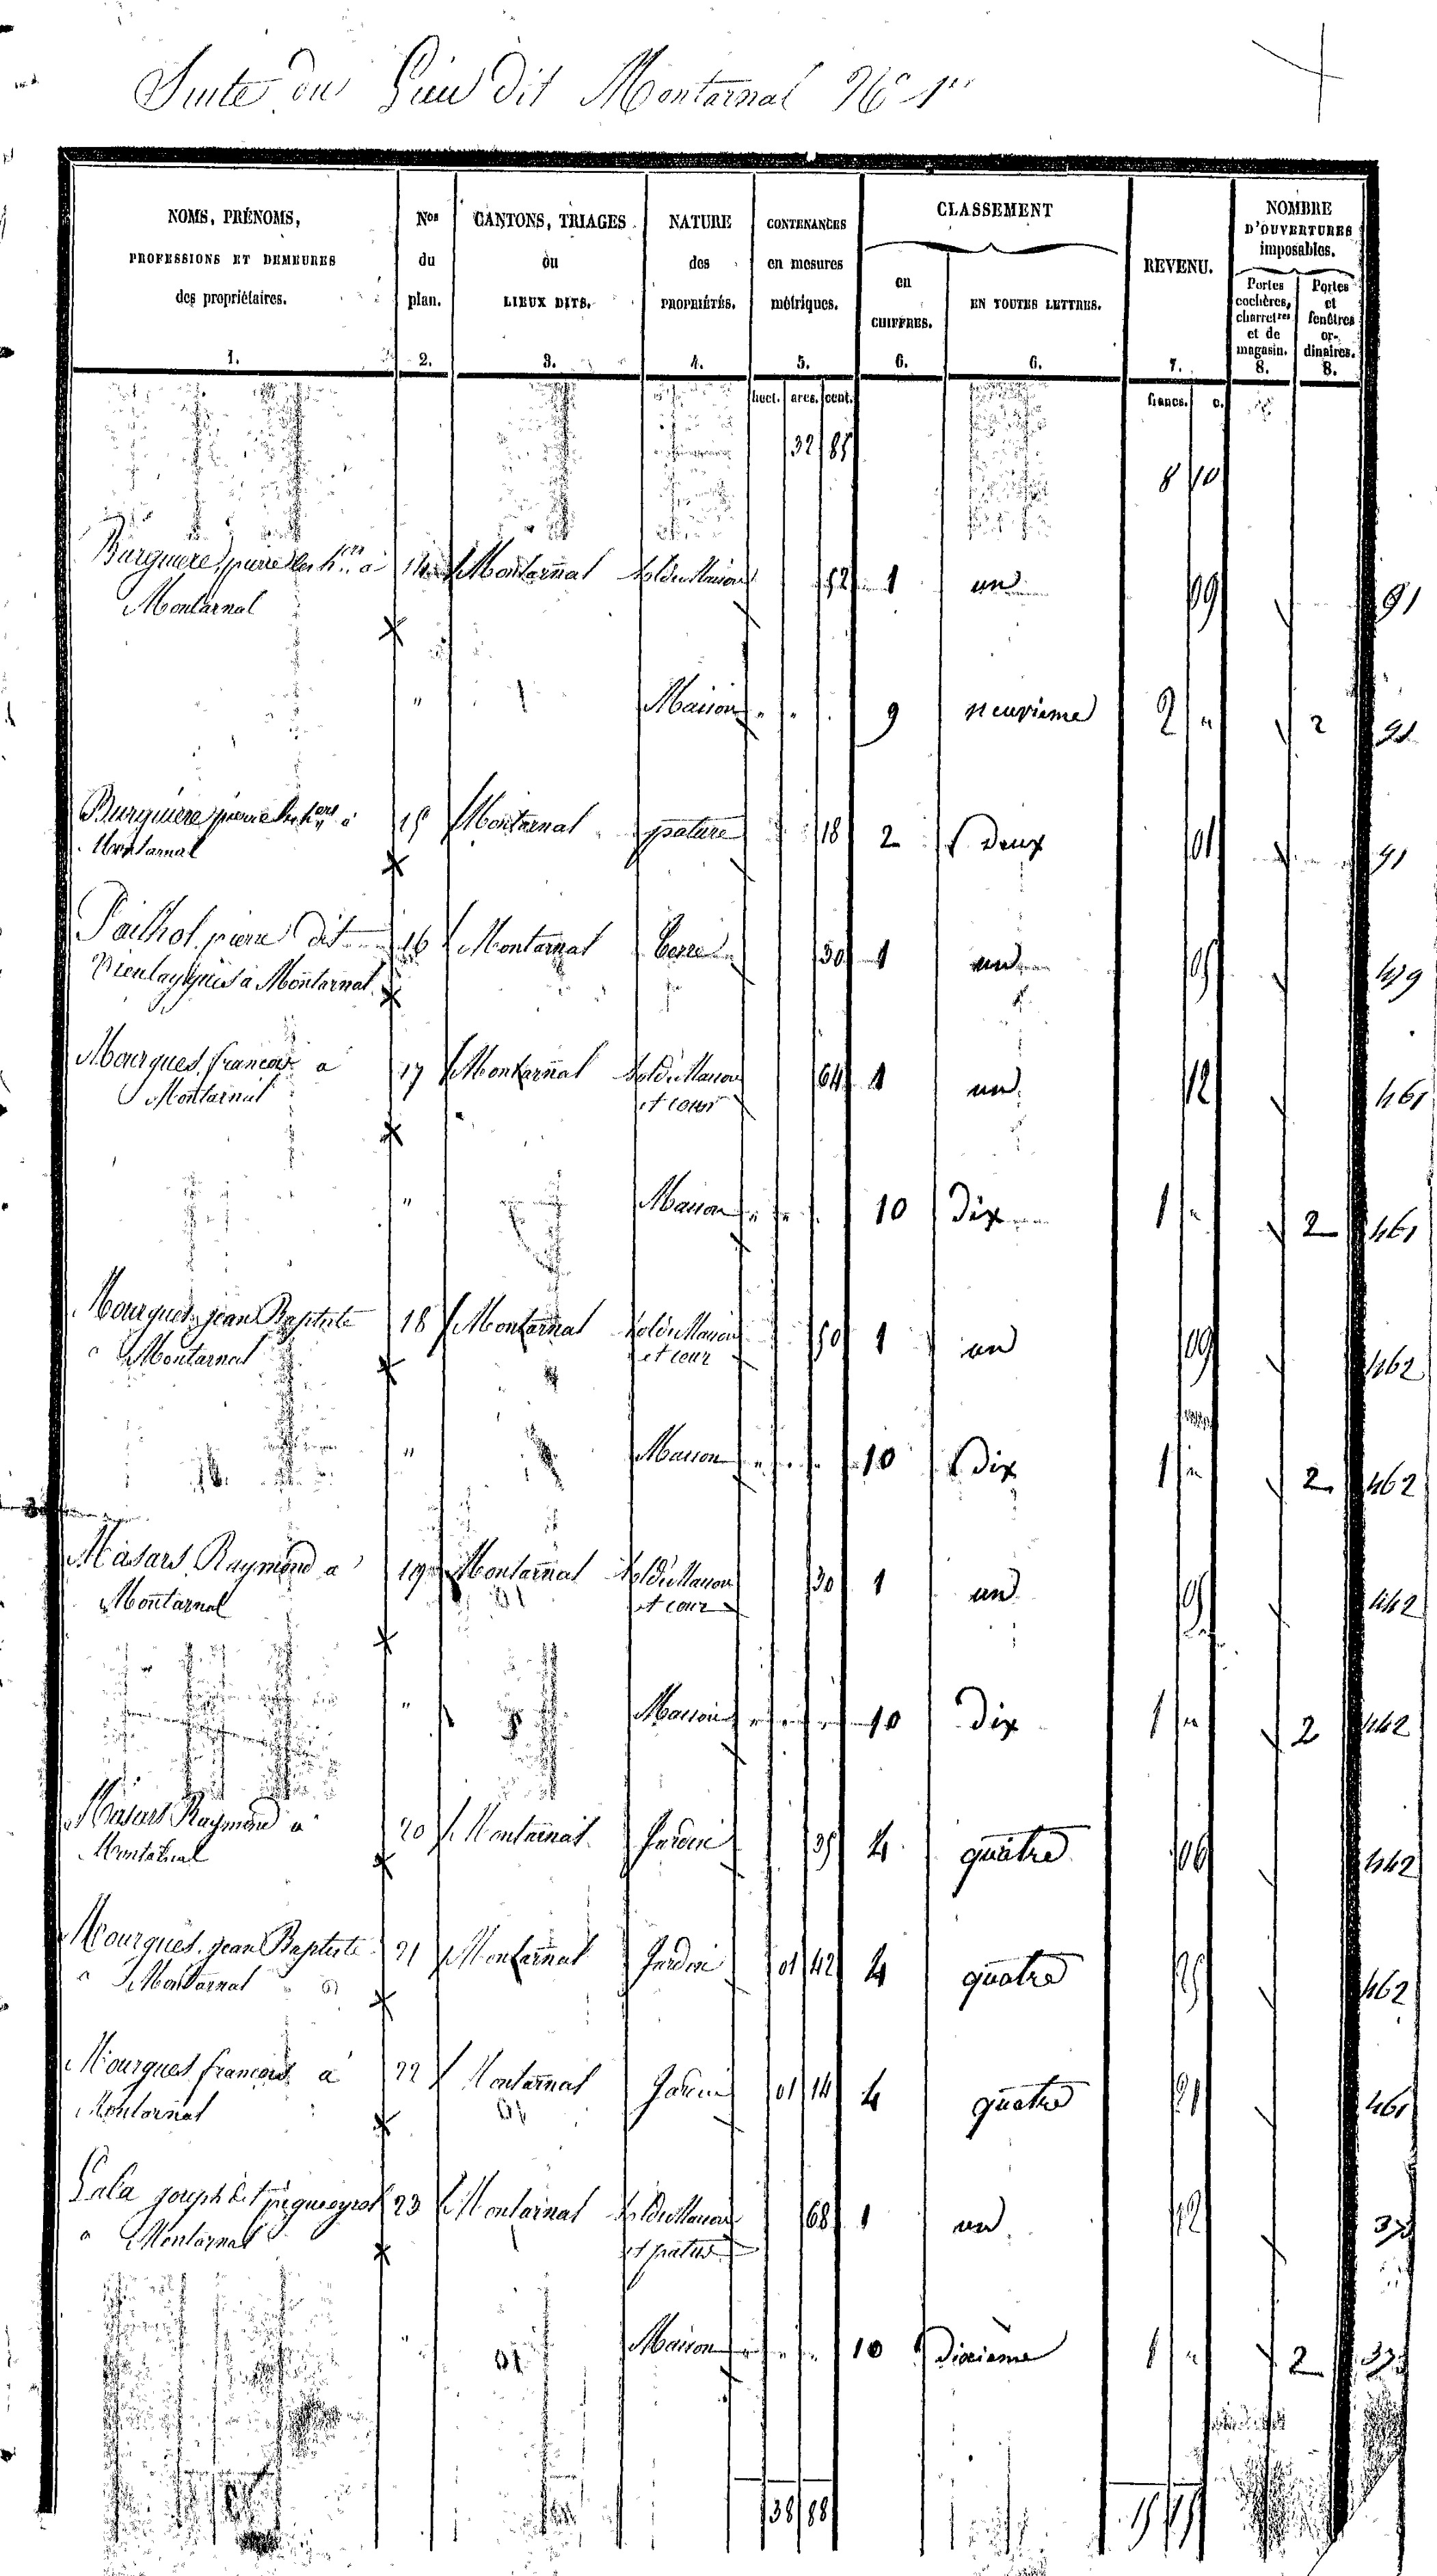 Suite du Lieu dit Montarnal No 1er
NOMS, PRÉNOMS, PROFESSIONS ET DEMEURES des propriétaires. 1.
Nos du plan. 2.
CANTONS, TRIAGES ou LIEUX DITS. 3.
NATURE des PROPRIÉTÉS. 4.
CONTENANCES en mesures métriques. 5.
CLASSEMENT
en CHIFFRES. 6.
EN TOUTES LETTRES. 6.
REVENU. 7.
NOMBRE D'OUVERTURES imposables.
Portes cochères, charretres et de magasin. 8.
Portes et fenêtres ordinaires. 8.
hect. ares. cent. francs. c.
32 85 8 10
Burguiere pierre les hers à 14 Montarnal Sol de Maison 52 1 un 09 91
Montarnal
" Maison " " 9 neuvieme 2 " 2 91
Burguiere pierre les hers à 15 Montarnal pature 18 2 Deux 01 91
Montarnal
Pailhol pierre dit 16 Montarnal terre 30 1 un 05
à Montarnal
Mourgues francois à 17 Montarnal Sol de Maison 64 1 un 12 461
Montarnal et cour
" Maison " " 10 Dix 1 " 2 461
Mourgues jean Baptiste 18 Montarnal Sol de Maison 50 1 un 09 462
à Montarnal et cour
" Maison " " " 10 Dix 1 " 2 462
Masars Raymond à 19 Montarnal Sol de Maison 30 1 un 05 442
Montarnal et cour
" Maison " " " 10 Dix 1 " 2 442
Masars Raymond à 20 Montarnal Jardin 35 4 quatre 06 442
Montarnal
Mourgues jean Baptiste 21 Montarnal Jardin 01 42 4 quatre 25 462
à Montarnal
Mourgues francois à 22 Montarnal Jardin 01 14 4 quatre 21 461
Montarnal
Sala joseph dit 23 Montarnal Sol de Maison 68 1 un 12
à Montarnal et patus
" Maison " " " 10 Dixieme 1 " 2
38 88 15 15